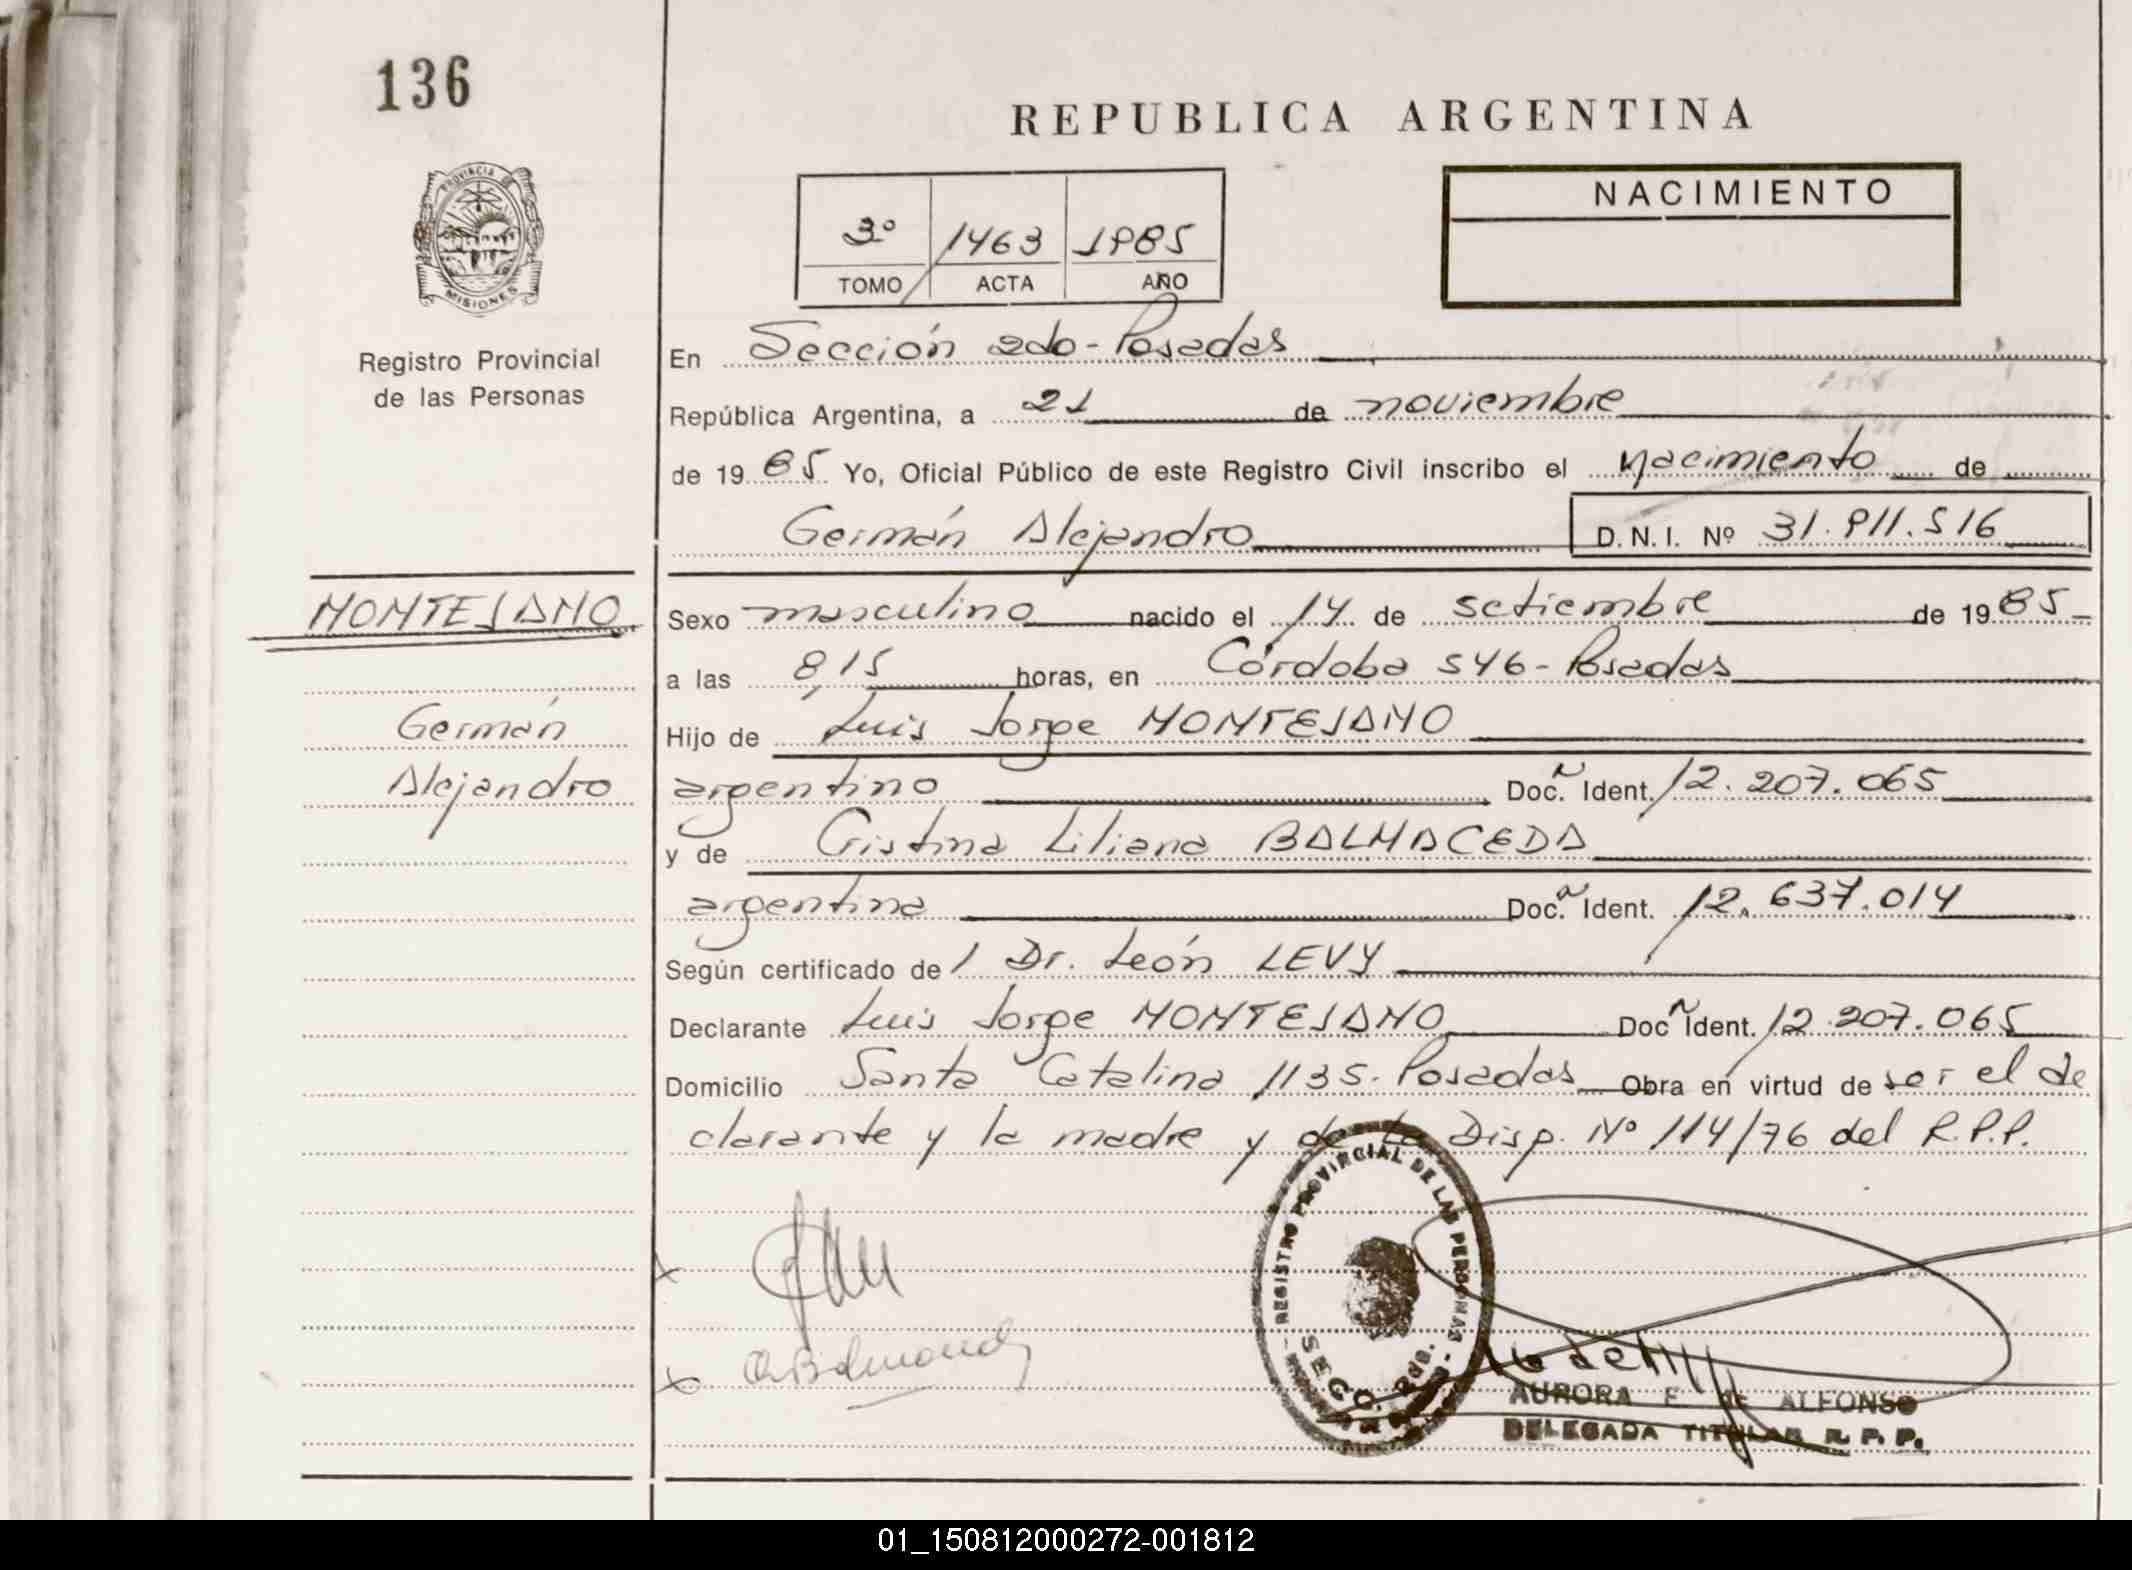 136
REPUBLICA ARGENTINA
PROVINCIA DE
MISIONES
Registro Provincial
de las Personas
3º 1463 1985
TOMO ACTA AÑO
NACIMIENTO
En Sección 2do - Posadas
República Argentina, a 21 de noviembre
de 1985 Yo, Oficial Público de este Registro Civil inscribo el nacimiento de
Germán Alejandro D.N.I. Nº 31.911.516
MONTEJANO
Germán
Alejandro
Sexo masculino nacido el 14 de setiembre de 1985
a las 8,15 horas, en Córdoba 546 - Posadas
Hijo de Luis Jorge MONTEJANO
argentino Doc. Ident. 12.207.065
y de Cristina Liliana BALMACEDA
argentina Doc. Ident. 12.637.014
Según certificado de / Dr. León LEVY
Declarante Luis Jorge MONTEJANO Doc Ident. 12.207.065
Domicilio Santa Catalina 1135. Posadas Obra en virtud de ser el de
clarante y la madre y de la Disp. Nº 114/76 del R.P.P.
REGISTRO PROVINCIAL DE LAS PERSONAS
AURORA F. DE ALFONSO
DELEGADA TITULAR R. P. P.
01_150812000272-001812